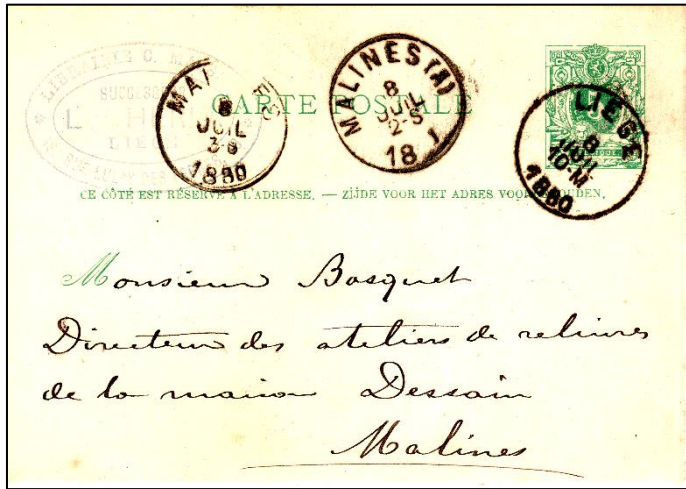 LIBRAIRIE C.
SUCCESSEUR
LIEGE
MAL
8
JUIL
3-S
1880
MALINES (A)
8
JUIL
2-S
18
CARTE POSTALE
LIEGE
8
JUIL
10-M
1880
CE CÔTÉ EST RÉSERVÉ A L'ADRESSE. — ZIJDE VOOR HET ADRES VOORBEHOUDEN.
Monsieur Bosquet
Directeur des ateliers de reliures
de la maison Dessain
Malines